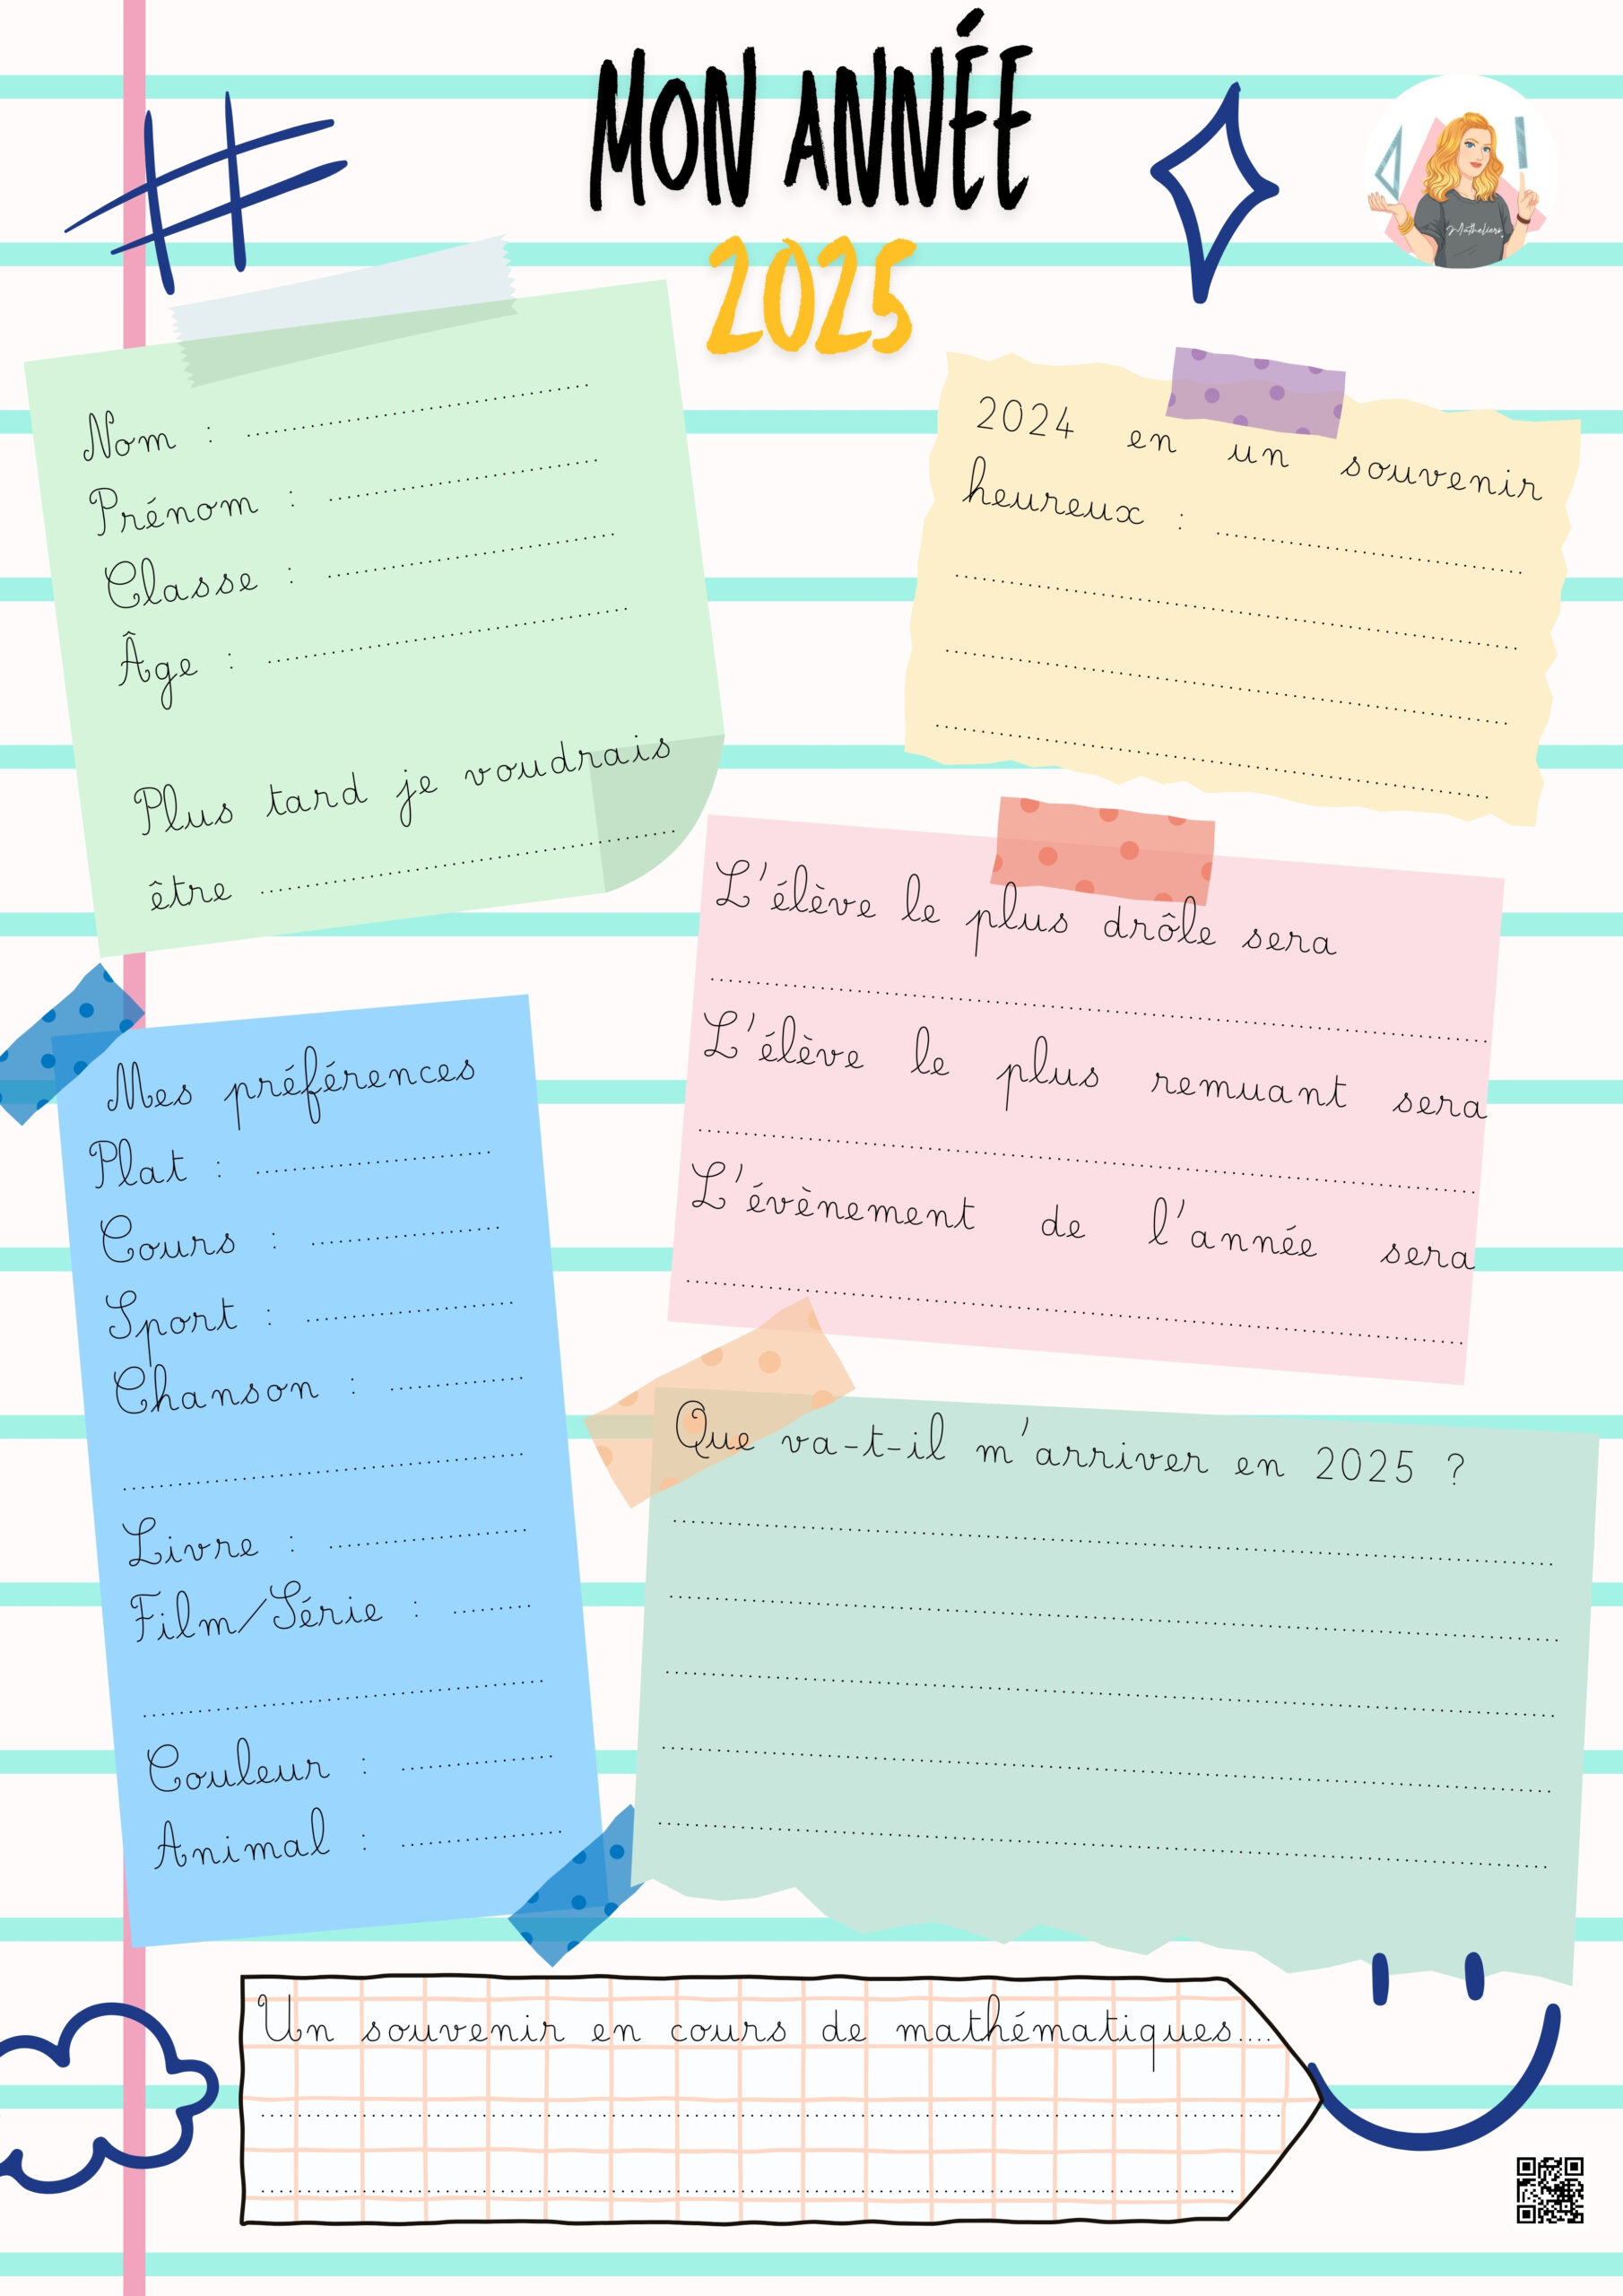 MON ANNÉE
2025
Matheliers
Nom : ........................
Prénom : ........................
Classe : ........................
Âge : ........................
Plus tard je voudrais
être ........................
2024 en un souvenir
heureux : ........................
L'élève le plus drôle sera
........................
L'élève le plus remuant sera
........................
L'évènement de l'année sera
........................
Mes préférences
Plat : ........................
Cours : ........................
Sport : ........................
Chanson : ........................
........................
Livre : ........................
Film/Série : ........................
........................
Couleur : ........................
Animal : ........................
Que va-t-il m'arriver en 2025 ?
........................
Un souvenir en cours de mathématiques....
........................